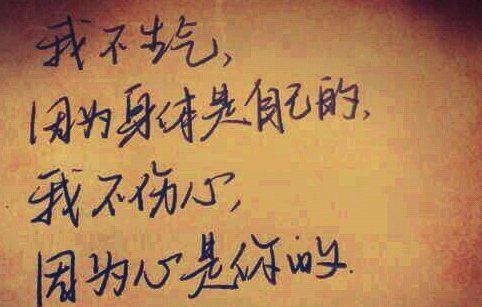 我不生气，
因为身体是自己的，
我不伤心，
因为心是你的.